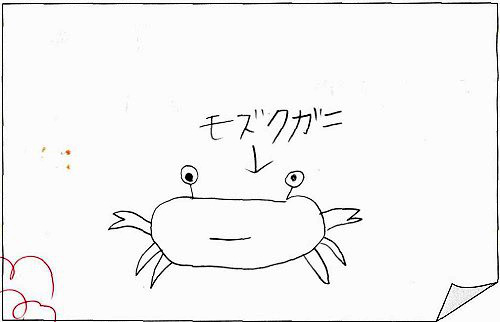 モズクガニ